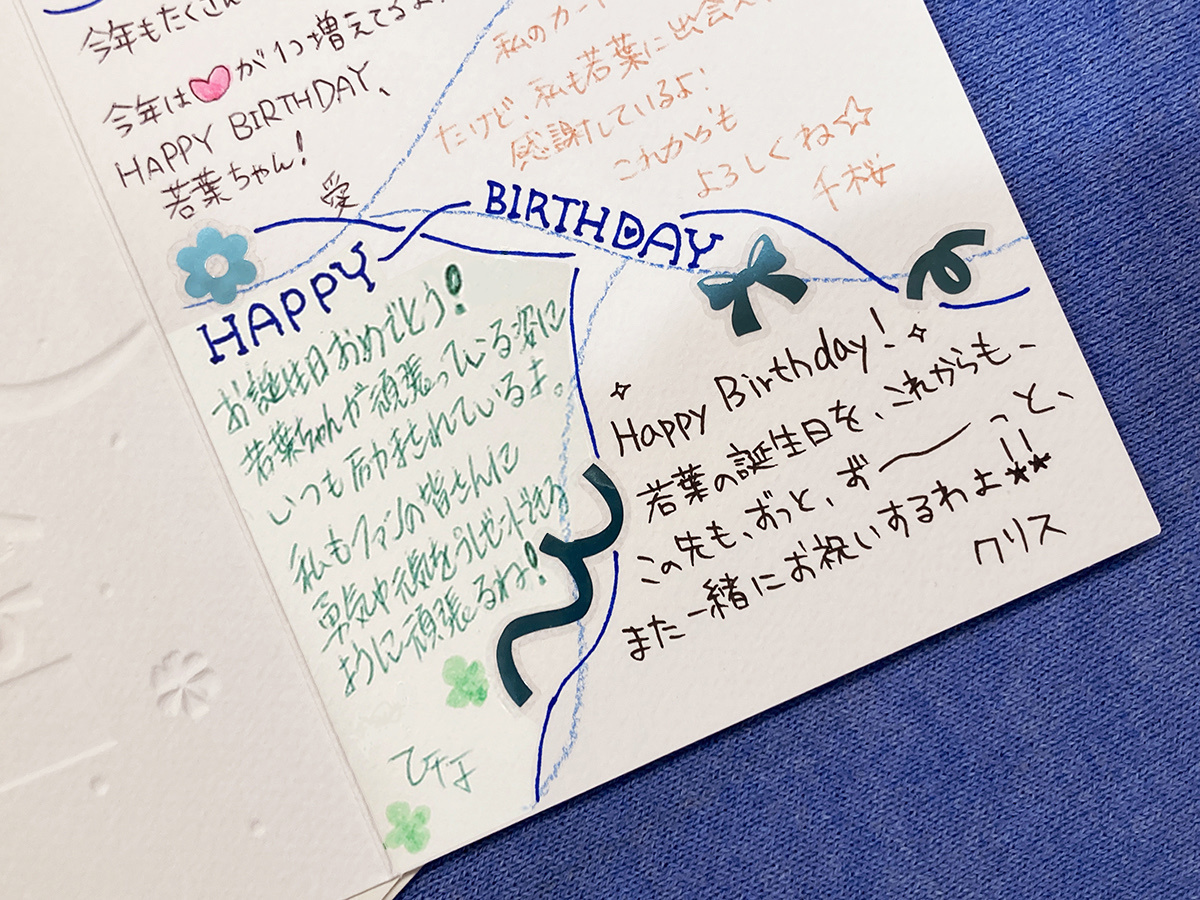 今年もたくさん
今年は♥が1つ増えてるよ!
HAPPY BIRTHDAY、
若葉ちゃん!
愛
私のカード
だけど、私も若葉に出会え
感謝しているよ!
これからも
よろしくね☆
千桜
HAPPY BIRTHDAY
お誕生日おめでとう!
若葉ちゃんが頑張っている姿に
いつも励まされているよ。
私もファンの皆さんに
勇気や元気をプレゼントできる
ように頑張るね!
Happy Birthday!
若葉の誕生日を、これからも、
この先も、ずっと、ず――っと、
また一緒にお祝いするわよ!!
クリス